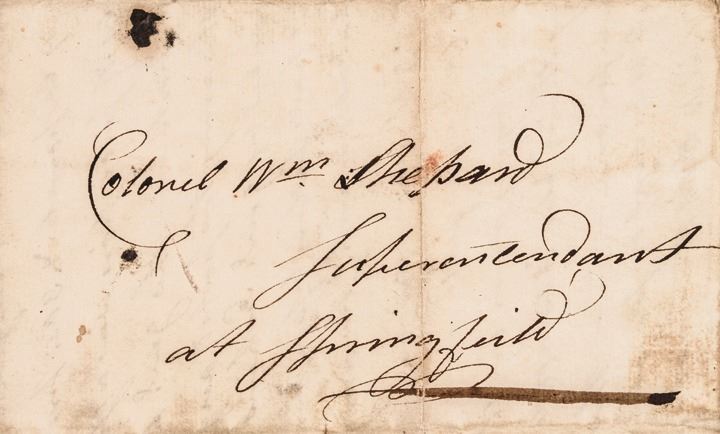 Colonel Wm Shepard
Superentendant
at Springfield